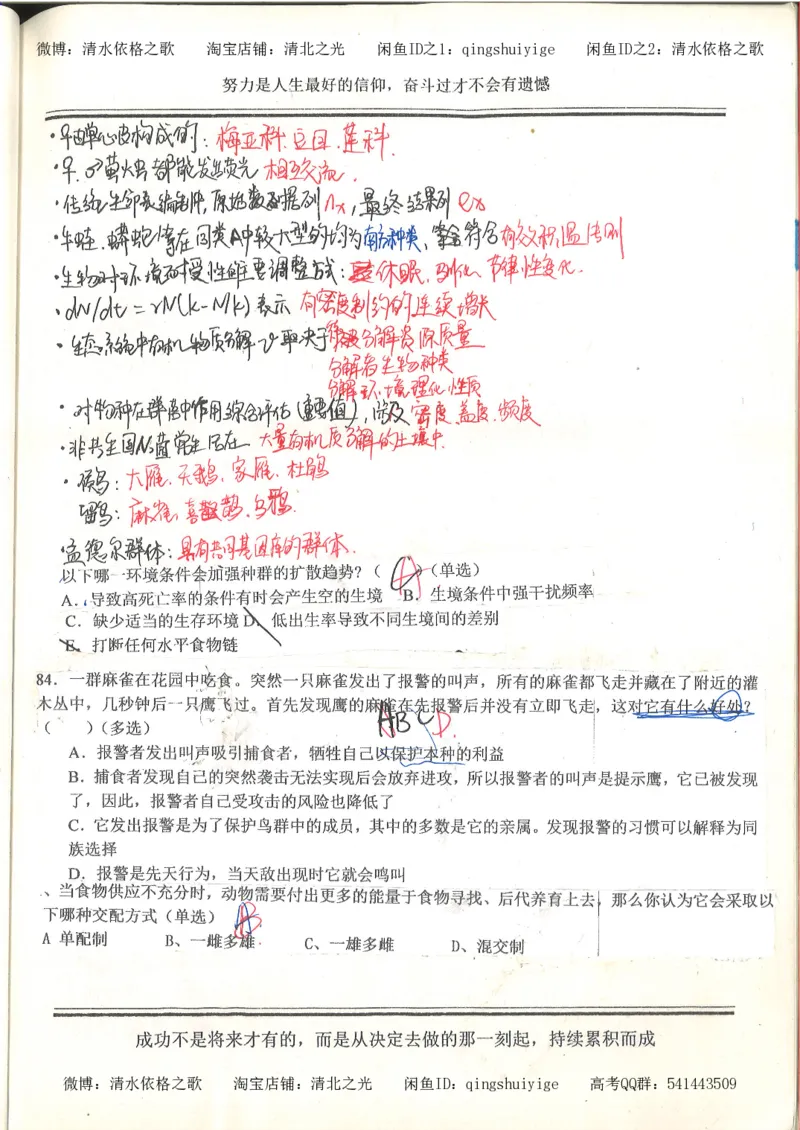 微博：清水依格之歌 淘宝店铺：清北之光 闲鱼ID之1：qingshuiyige 闲鱼ID之2：清水依格之歌
努力是人生最好的信仰，奋斗过才不会有遗憾
·早由单心皮构成的：梅亚科.豆目.莲科.
·♀.♂萤火虫都能发出荧光 相互交流.
·传统生命表编制中,原始数据列nx,最终结果列ex
·牛蛙.蟒蛇等在同类A中较大型的均为南方种类,符合有效积温法则
·生物对环境耐受性的主要调整方式：休眠.驯化.节律性变化.
·dN/dt=rN(k-N/k)表示 有密度制约的连续增长
·生态系统中有机物质分解v取决于待被分解资源质量
分解者生物种类
分解环境理化性质
·对物种在群落中作用综合评估(重要值),涉及 密度.盖度.频度
·非共生固N菌常生活在 大量有机质分解的土壤中.
·候鸟：大雁.天鹅.家雁.杜鹃
留鸟：麻雀.喜鹊.乌鸦.
孟德尔群体：具有共同基因库的群体.
以下哪一环境条件会加强种群的扩散趋势？（ A ）（单选）
A．导致高死亡率的条件有时会产生空的生境 B．生境条件中强干扰频率
C．缺少适当的生存环境 D．低出生率导致不同生境间的差别
E．打断任何水平食物链
84．一群麻雀在花园中吃食。突然一只麻雀发出了报警的叫声，所有的麻雀都飞走并藏在了附近的灌
木丛中，几秒钟后一只鹰飞过。首先发现鹰的麻雀在先报警后并没有立即飞走，这对它有什么好处？
（ ）（多选） ABCD.
A．报警者发出叫声吸引捕食者，牺牲自己以保护本种的利益
B．捕食者发现自己的突然袭击无法实现后会放弃进攻，所以报警者的叫声是提示鹰，它已被发现
了，因此，报警者自己受攻击的风险也降低了
C．它发出报警是为了保护鸟群中的成员，其中的多数是它的亲属。发现报警的习惯可以解释为同
族选择
D．报警是先天行为，当天敌出现时它就会鸣叫
、当食物供应不充分时，动物需要付出更多的能量于食物寻找、后代养育上去，那么你认为它会采取以
下哪种交配方式（单选） B
A 单配制 B、一雌多雄 C、一雄多雌 D、混交制
成功不是将来才有的，而是从决定去做的那一刻起，持续累积而成
微博：清水依格之歌 淘宝店铺：清北之光 闲鱼ID：qingshuiyige 高考QQ群：541443509